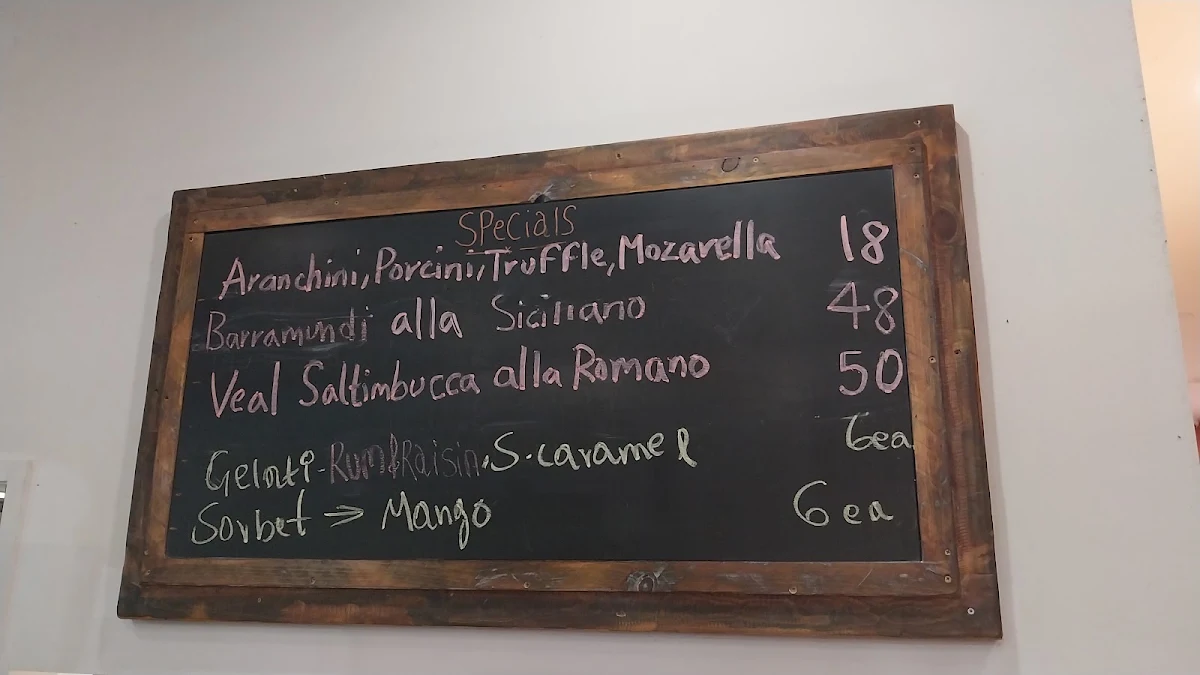 SPecials
Aranchini, Porcini, Truffle, Mozarella 18
Barramundi alla Siciliano 48
Veal Saltimbucca alla Romano 50
Gelati - Rum & Raisin, S. caramel 6ea
Sorbet ⇒ Mango 6 ea